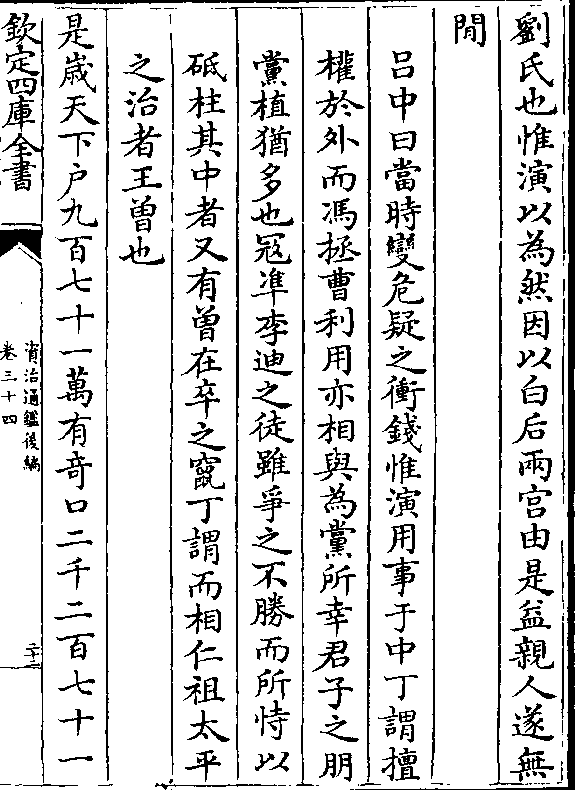 劉氏也惟演以為然因以白后兩宫由是益親人遂無
閒
吕中曰當時變危疑之衝錢惟演用事于中丁謂擅
權於外而馮拯曹利用亦相與為黨所幸君子之朋
黨植猶多也冦凖李迪之徒雖爭之不勝而所恃以
砥柱其中者又有曾在卒之竄丁謂而相仁祖太平
之治者王曽也
是歳天下户九百七十一萬有竒口二千二百七十一
欽定四庫全書
資治通鑑後編
卷三十四
二十二